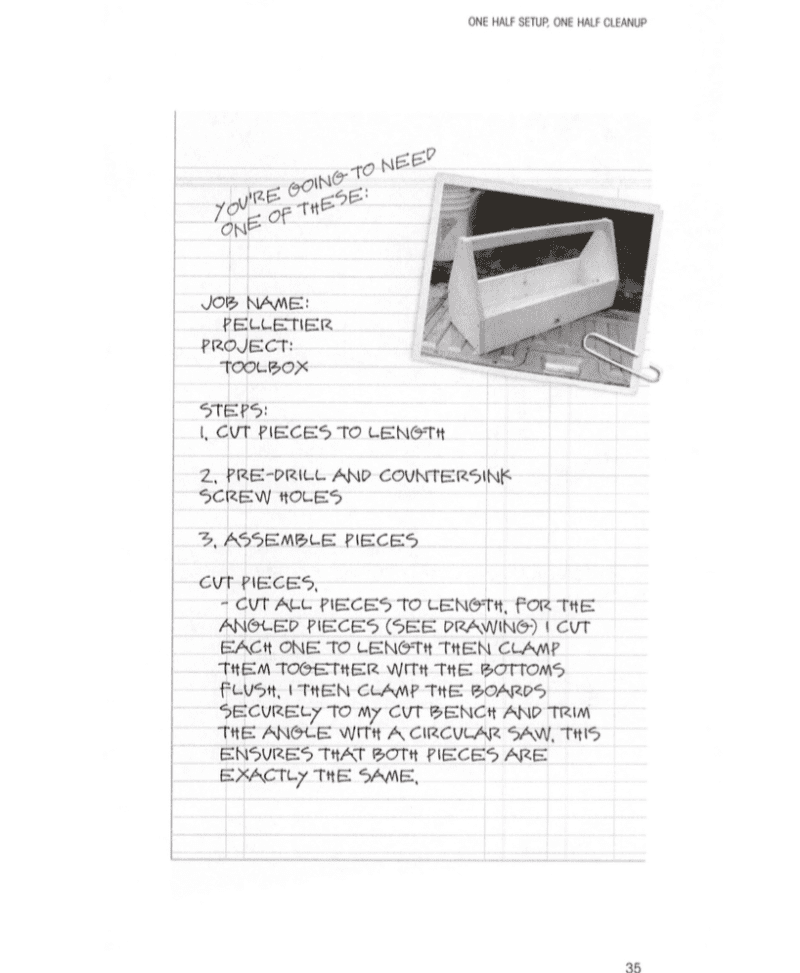 ONE HALF SETUP, ONE HALF CLEANUP
YOU'RE GOING TO NEED
ONE OF THESE:
JOB NAME:
PELLETIER
PROJECT:
TOOLBOX
STEPS:
1. CUT PIECES TO LENGTH
2. PRE-DRILL AND COUNTERSINK
SCREW HOLES
3. ASSEMBLE PIECES
CUT PIECES.
- CUT ALL PIECES TO LENGTH. FOR THE
ANGLED PIECES (SEE DRAWING) I CUT
EACH ONE TO LENGTH THEN CLAMP
THEM TOGETHER WITH THE BOTTOMS
FLUSH. I THEN CLAMP THE BOARDS
SECURELY TO MY CUT BENCH AND TRIM
THE ANGLE WITH A CIRCULAR SAW. THIS
ENSURES THAT BOTH PIECES ARE
EXACTLY THE SAME.
35